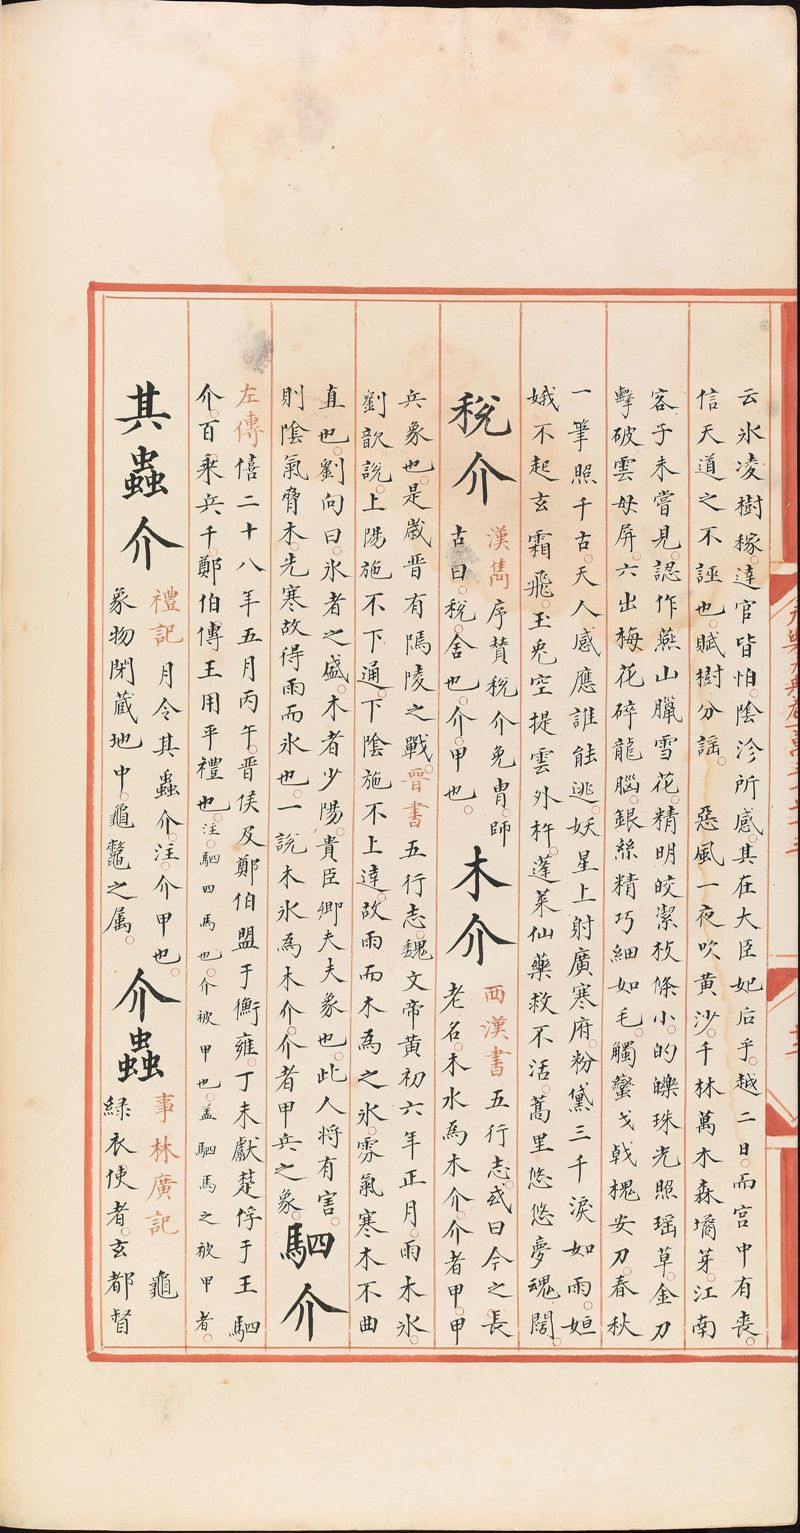 云氷凌樹稼。達官皆怕。陰沴所感。其在大臣妃后乎。越二日。而宮中有喪。
信天道之不誣也。賦樹分謡。 惡風一夜吹黃沙。千林萬木森墧芽。江南
客子未嘗見。認作燕山臘雪花。精明皎潔枚條小。的皪珠光照瑶草。金刀
擊破雲母屏。六出梅花碎龍腦。銀絲精巧細如毛。觸蠻戈戟槐安刀。春秋
一筆照千古。天人感應誰能逃。妖星上射廣寒府。粉黛三千淚如雨。姮
娥不起玄霜飛。玉兎空提雲外杵。蓬萊仙藥救不活。蒿里悠悠夢魂闊。
稅介
漢雋序贊稅介免胄。師
古曰。稅。舍也。介。甲也。
木介
西漢書五行志。或曰今之長
老名。木氷爲木介。介者甲。甲
兵象也。是歲晋有隝陵之戰。晋書五行志。魏文帝黃初六年正月。雨木氷。
劉歆說。上陽施不下通。下陰施不上達。故雨而木爲之氷。雰氣寒木不曲
直也。劉向曰。氷者之盛。木者少陽。貴臣卿夫夫象也。此人將有害。
則陰氣脅木。先寒故得雨而氷也。一說木氷爲木介。介者甲兵之象。
駟介
左傳僖二十八年五月丙午。晋侯及鄭伯盟于衡雍。丁未獻楚俘于王駟
介。百乘兵千。鄭伯傅王用平禮也。注。駟四馬也。介被甲也。盖駟馬之被甲者。
其蟲介
禮記月令其蟲介。注。介甲也。
象物閉藏地中。龜鼈之属。
介蟲
事林廣記 龜
緑衣使者。玄都督